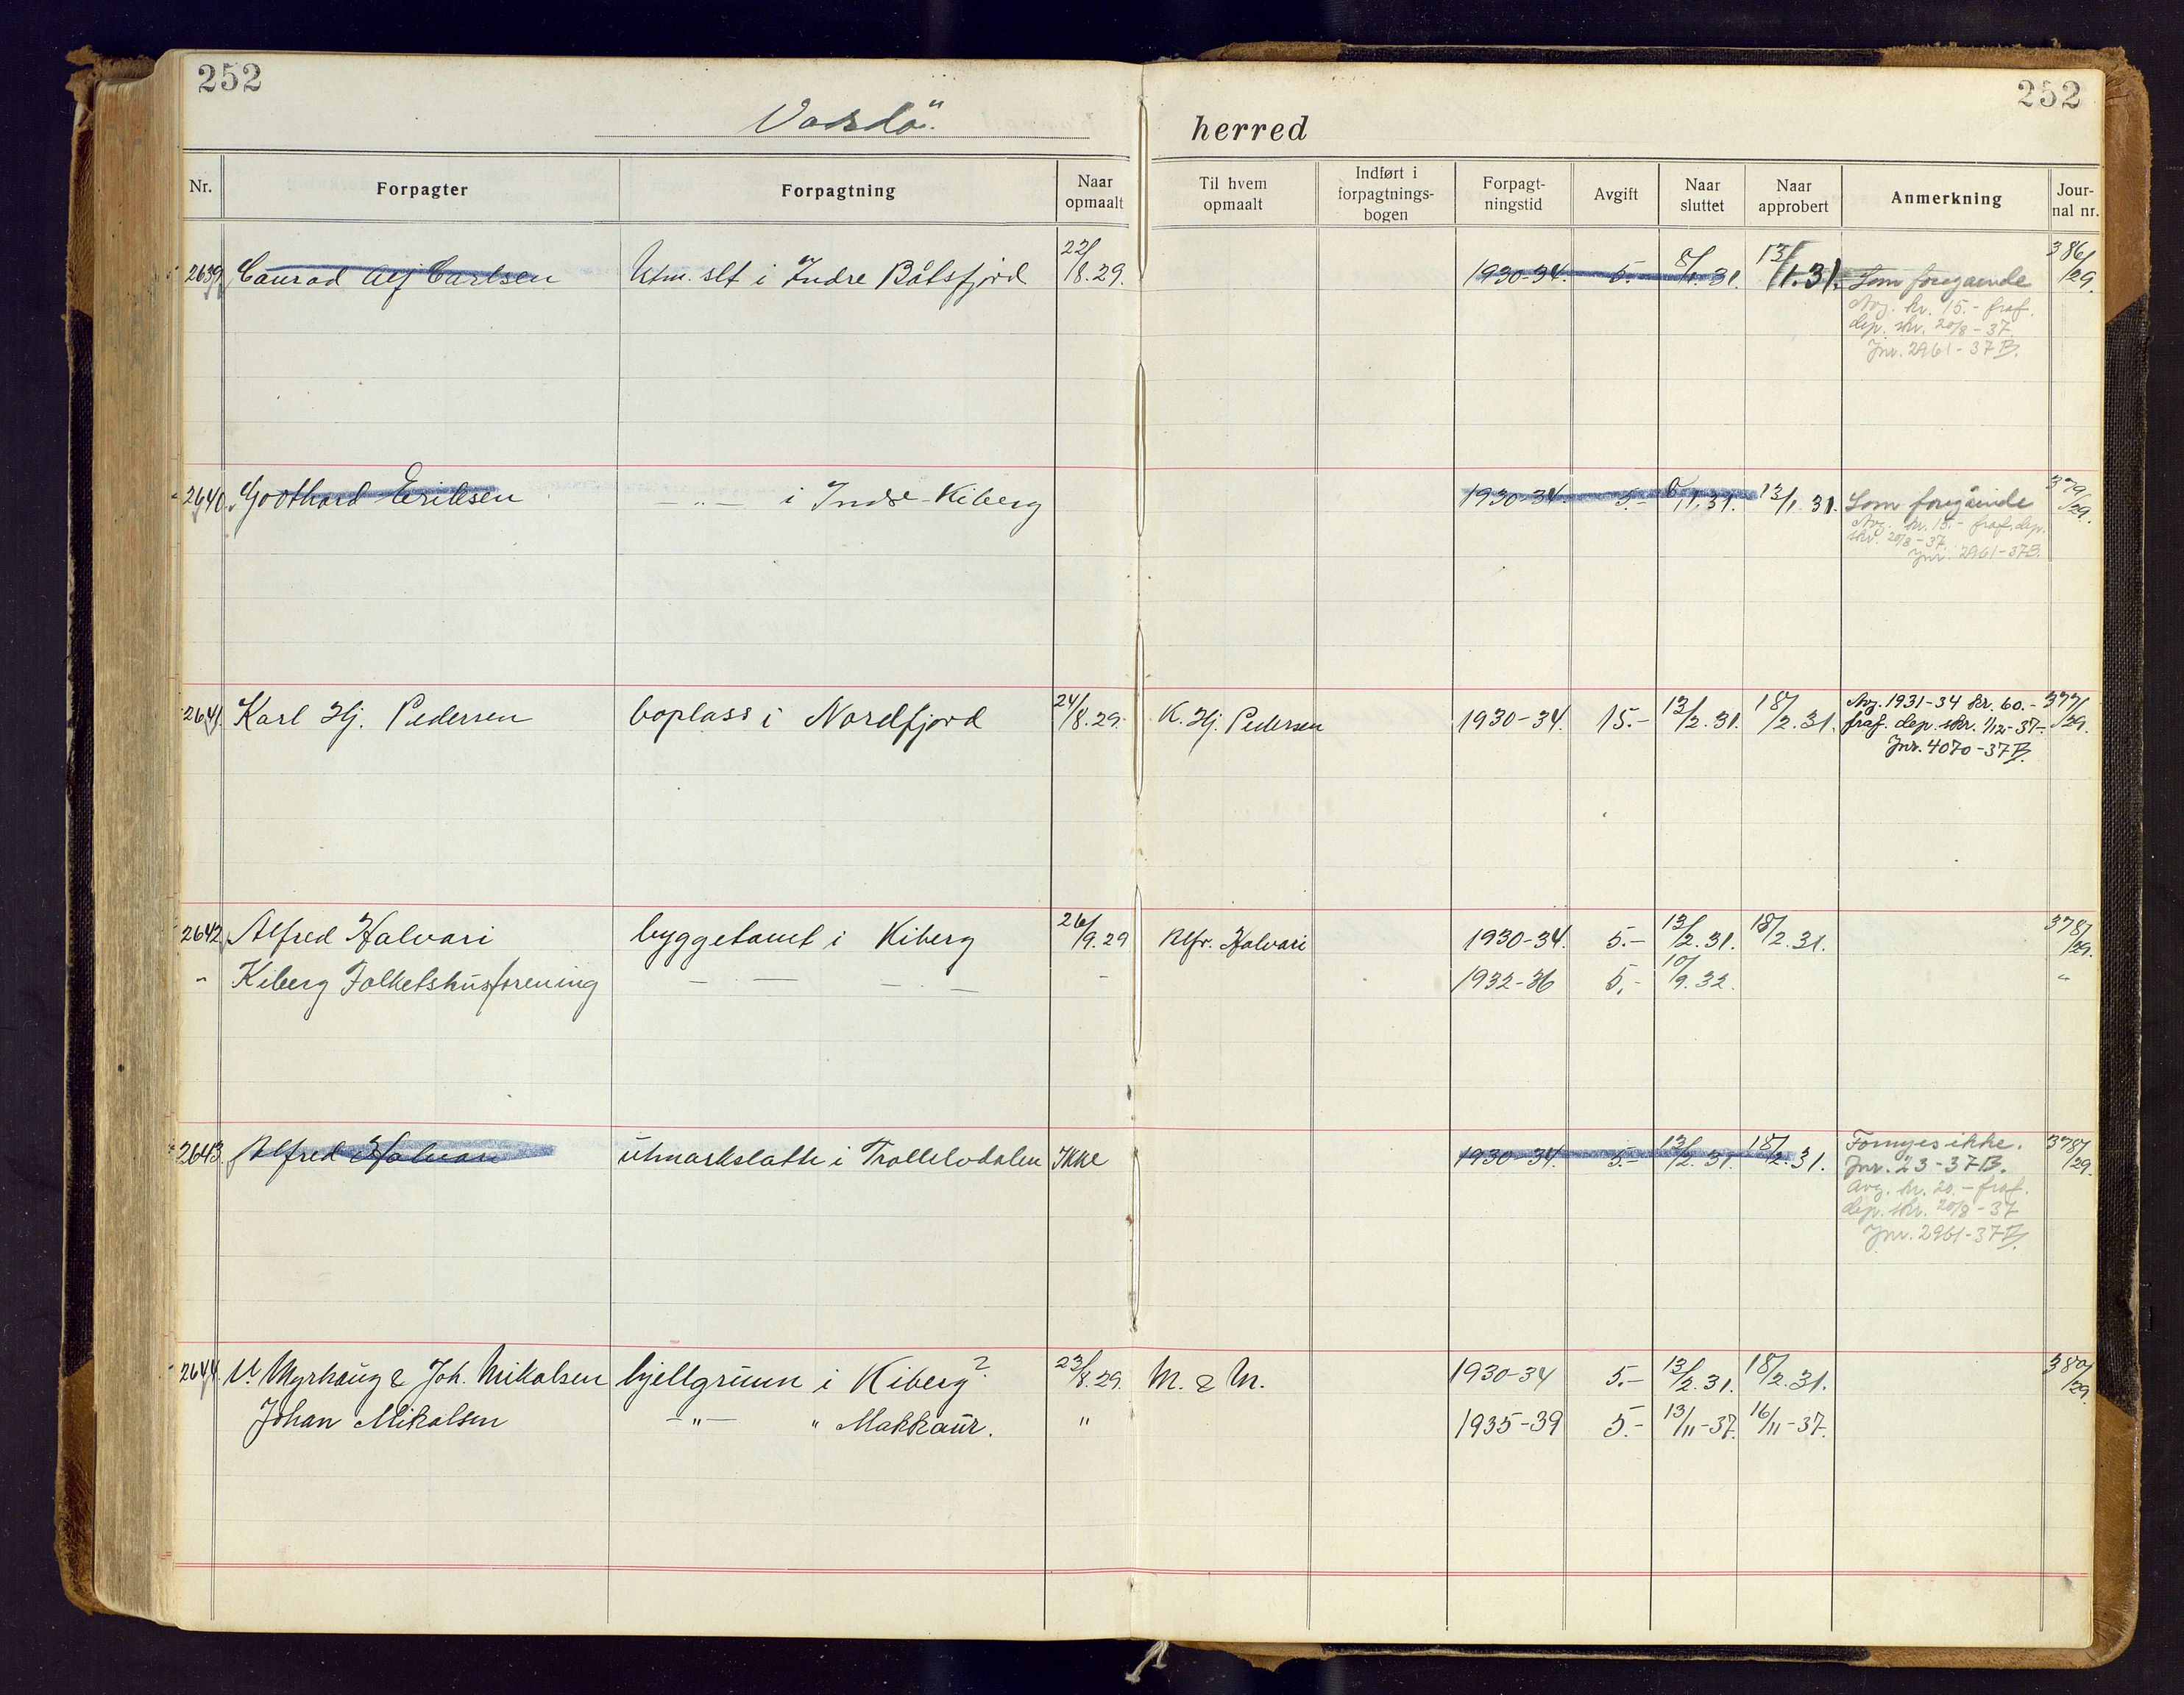 252
252
Vardö
herred
Nr. Forpagter Forpagtning Naar opmaalt Til hvem opmaalt Indført i forpagtnings-bogen Forpagt-ningstid Avgift Naar sluttet Naar approbert Anmerkning Jour-nal nr.
2639 Conrad Alf Carlsen Utm. slt i Indre Båtsfjord 22/8.29. 1930-34. 5.- 8/1.31. 13/1.31. Som foregående 386/29.
Avg. kr. 15.- fraf.
dep. skr. 20/8-37.
Jnr. 2961-37B.
2640. Gotthard Eriksen -"- i Indre Kiberg 1930-34. 5.- 13/1.31. Som foregående 379/29.
Avg. kr. 15.- fraf. dep.
skr. 20/8-37.
Jnr. 2961-37B.
2641. Karl Hj. Pedersen boplass i Nordfjord 24/8.29. K. Hj. Pedersen 1930-34. 15.- 13/2.31. 18/2.31. Avg. 1931-34 kr. 60.- 377/29.
fraf. dep. skr. 1/12-37.
Jnr. 4070-37B.
2642 Alfred Halvari byggetomt i Kiberg 26/9.29 Alfr. Halvari 1930-34. 5.- 13/2.31. 18/2.31. 378/29.
" Kiberg Folketshusforening - — - — - 1932-36 5,- 10/9.32. "
2643. Alfred Halvari utmarkslått i Trollelvdalen Ikke 1930-34. 5.- 13/2.31. 18/2.31. Fornyes ikke. 378/29.
Jnr. 23-37B.
Avg. kr. 20.- fraf.
dep. skr. 20/8-37
Jnr. 2961-37B.
2644. Myrhaug & Joh. Mikalsen hjellgrunn i Kiberg? 23/8.29. M. & M. 1930-34 5.- 13/2.31. 18/2.31. 380/29.
Johan Mikalsen -"- " Makkaur. " 1935-39 5.- 13/11-37. 16/11-37.